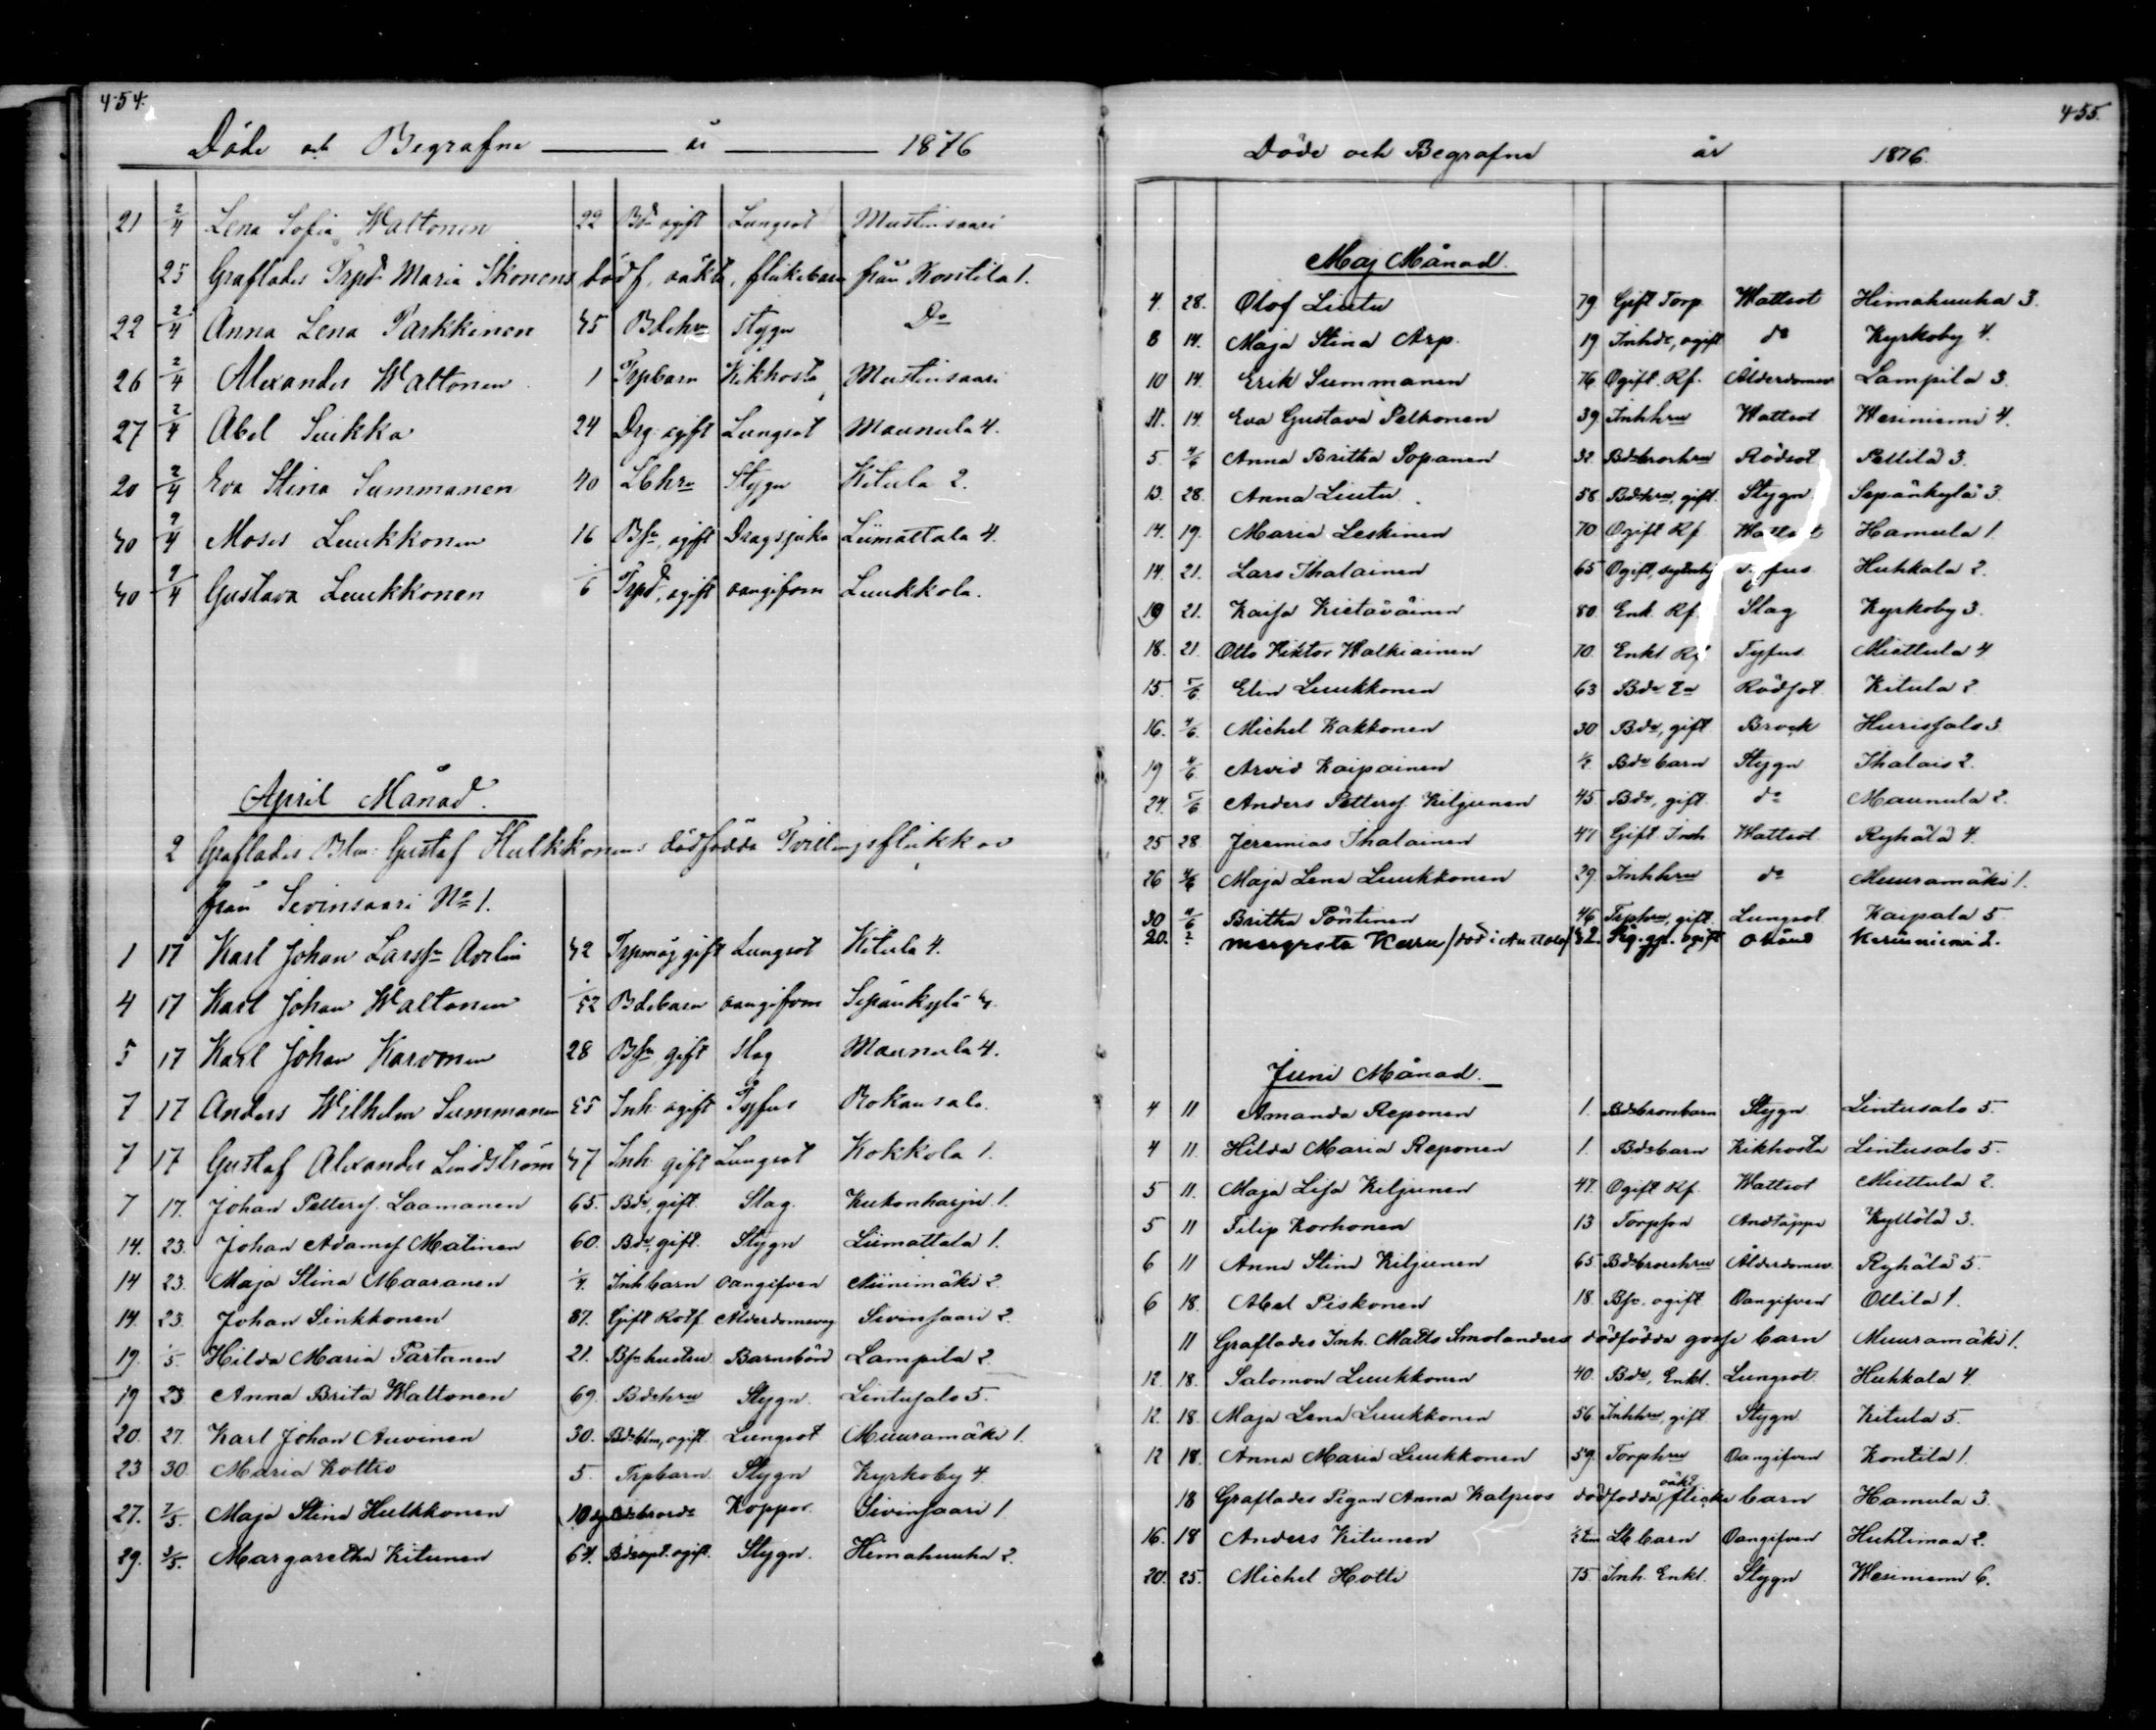 454.
Döde och Begrafne år 1876
21 2/4 Lena Sofia Waltonen 22 Bdr ogift Lungsot Mustinsaari
25 Graflades Trpd. Maria Ikonens dödf. oäkta, flickebarn från Kontila 1.
22 2/4 Anna Lena Parkkinen 45 Bdehru Stygn Do
26 2/4 Alexander Waltonen 1 Trpbarn Kikhosta Mustinsaari
27 2/4 Abel Suikka 24 Drg. ogift Lungsot Maunula 4.
20 2/4 Eva Stina Summanen 40 Lbhru Stygn Kitula 2.
30 9/4 Moses Luukkonen 16 Bsn, ogift Dragsjuka Liimattala 4.
30 9/4 Gustava Luukkonen 1/6 Trpd, ogift oangifven Luukkola.
April Månad.
2 Graflades Blm: Gustaf Hulkkonens dödfödda Tvillingsflickor
från Sivinsaari No 1.
1 17 Karl Johan Larsson 42 Trpmåg gift Lungsot Kitula 4.
4 17 Karl Johan Waltonen 1/52 Bdebarn oangifven Sepänkylä
5 17 Karl Johan Karvonen 28 Bsn gift Slag Maunula 4.
7 17 Anders Wilhelm Summanen 55 Inh: ogift Tyfus Rokansalo.
7 17 Gustaf Alexander Lindström 47 Inh: gift Lungsot Kokkola 1.
7 17. Johan Pettersf. Laamanen 65. Bde, gift. Slag. Kukonharju 1.
14. 23. Johan Adamsf Matinen 60. Bde, gift. Stygn Liimattala 1.
14 23. Maja Stina Maaranen 1/4. Inhbarn oangifven Niinimäki 2.
14. 23. Johan Sinkkonen 87. Gift Rotf Ålderdomsvag Sivinsaari 2.
19. 1/5. Hilda Maria Partanen 21. Bsnhustru Barnsbörd Lampila 2.
19 23. Anna Brita Waltonen 69. Bdehru Stygn. Lintusalo 5.
20. 27. Karl Johan Auvinen 30. Bdeblm, ogift. Lungsot Muuramäki 1.
23 30. Maria Kotro 5. Trpbarn. Stygn Kyrkoby 4.
27. 7/5. Maja Stina Hulkkonen 10 Bdebrord. Koppor. Sivinsaari 1.
29. 3/5. Margaretha Kitunen 64. ogift. Stygn. Himahuuha 2.
455.
Döde och Begrafne år 1876.
Maj Månad.
4. 28. Olof Liutu 79 Gift Torp. Wattsot Himahuuha 3.
8 14. Maja Stina Arp. 19 Inhdr, ogift do Kyrkoby 4.
10 14. Erik Summanen 76 Ogift. Rf. Ålderdomsv. Lampila 3.
11. 14. Eva Gustava Pelkonen 39. Inhhru Wattsot Wesiniemi 4.
5. 4/6 Anna Britha Sopanen 32. Bdebrorhru Rödsot. Pellilä 3.
13. 28. Anna Liutu. 58 Bdehru, gift. Stygn Sepänkylä 3.
14. 19. Maria Leskinen 70 Ogift Rf. Wattsot Hamula 1.
14. 21. Lars Ihalainen 65 Ogift, Tyfus. Huhkala 2.
19 21. Kaisa Kietäväinen 80. Enk. Rf. Slag Kyrkoby 3.
18. 21. Otto Wiktor Walkiainen 70. Enkl. Rf Tyfus. Miettula 4
15. 5/6. Elin Luukkonen 63 Bde Ea Rödsot. Kitula 2
16. 4/6. Michel Kakkonen 30 Bde, gift. Brock Hurissalo 3
19 4/6. Arvid Kaipainen 1/2. Bde barn Stygn Ihalais 2.
24. 5/6 Anders Pettersf. Kiljunen 45. Bde, gift. do Maunula 2.
25 28 Jeremias Ihalainen 47 Gift. Inh. Wattsot Ryhälä 4.
26 4/6 Maja Lena Luukkonen 29. Inhhru do Muuramäki 1.
30 4/6 Britha Pöntinen 46 Trphru, gift. Lungsot. Kaipala 5.
20. ? Margreta Karu /död i Anttola/ 52. ogift okänd Kerinniemi 2.
Juni Månad.
4 11 Amanda Reponen 1. Bdebronbarn Stygn Lintusalo 5.
4 11. Hilda Maria Reponen 1. Bdebarn Kikhosta Lintusalo 5.
5 11. Maja Lisa Kiljunen 47. Ogift Rf. Wattsot Miettula 2.
5 11 Filip Korhonen 13 Torpson Andtäppa Kyllölä 3.
6 11 Anna Stina Kiljunen 65. Bdebrorshru Ålderdomsv. Ryhälä 5.
6 18. Abel Piskonen 18. Bsn. ogift. Oangifven Ollila 1.
11 Graflades Inh. Matts Smolanders dödfödda gosse barn Muuramäki 1.
12. 18. Salomon Luukkonen 40. Bde, Enkl. Lungsot Huhkala 4.
12. 18. Maja Lena Luukkonen 56. Inhhru, gift. Stygn Kitula 5.
12 18. Anna Maria Luukkonen 59. Torphru Oangifven Kontila 1.
18 Graflades Pigan Anna Kalpios dödfödda oäkt. flicke barn Hamula 3.
16. 18 Anders Kitunen Lb barn Oangifven Huhtimaa 2.
20. 25. Michel Hotti 75. Inh. Enkl. Stygn Wesiniemi 6.